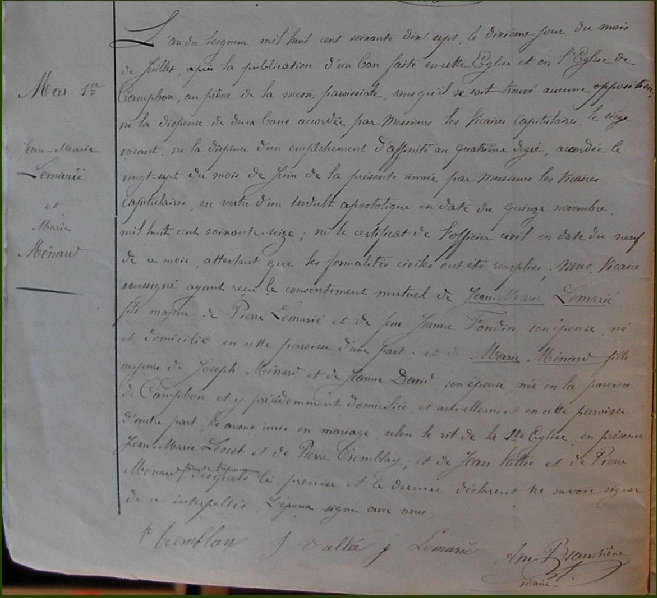 Mar. 1re
Jean-Marie
Lemarié
et
Marie
Ménard
L'an du Seigneur mil huit cent soixante dix sept, le dixième jour du mois
de Juillet, après la publication d'un ban faite en cette Eglise et en l'Eglise de
Campbon, au prône de la messe paroissiale, sans qu'il se soit trouvé aucune opposition,
vu la dispense de deux bans accordée par Messieurs les Vicaires capitulaires, le siège
vacant, vu la dispense d'un empêchement d'affinité au quatrième degré, accordée le
vingt-sept du mois de Juin de la présente année par Messieurs les Vicaires
capitulaires, en vertu d'un indult apostolique en date du quinze novembre
mil huit cent soixante seize; vu le certificat de l'officier civil en date du neuf
de ce mois, attestant que les formalités civiles ont été remplies, Nous, Vicaire
soussigné ayant reçu le consentement mutuel de Jean-Marie Lemarié
fils majeur de Pierre Lemarié et de feue Jeanne son épouse, né
et domicilié en cette paroisse d'une part; et de Marie Ménard fille
majeure de Joseph Ménard et de Jeanne David, son épouse, née en la paroisse
de Campbon et y précédemment domiciliée, et actuellement en cette paroisse
d'autre part, les avons unis en mariage, selon le rit de la Ste Eglise, en présence
Jean-Marie et de Pierre Tremblay; et de Jean Vallée et de Pierre
Ménard desquels le premier et le dernier déclarent ne savoir signer
de ce interpellés. L'époux signe avec nous.
P Tremblay J Vallée J Lemarié
vicaire